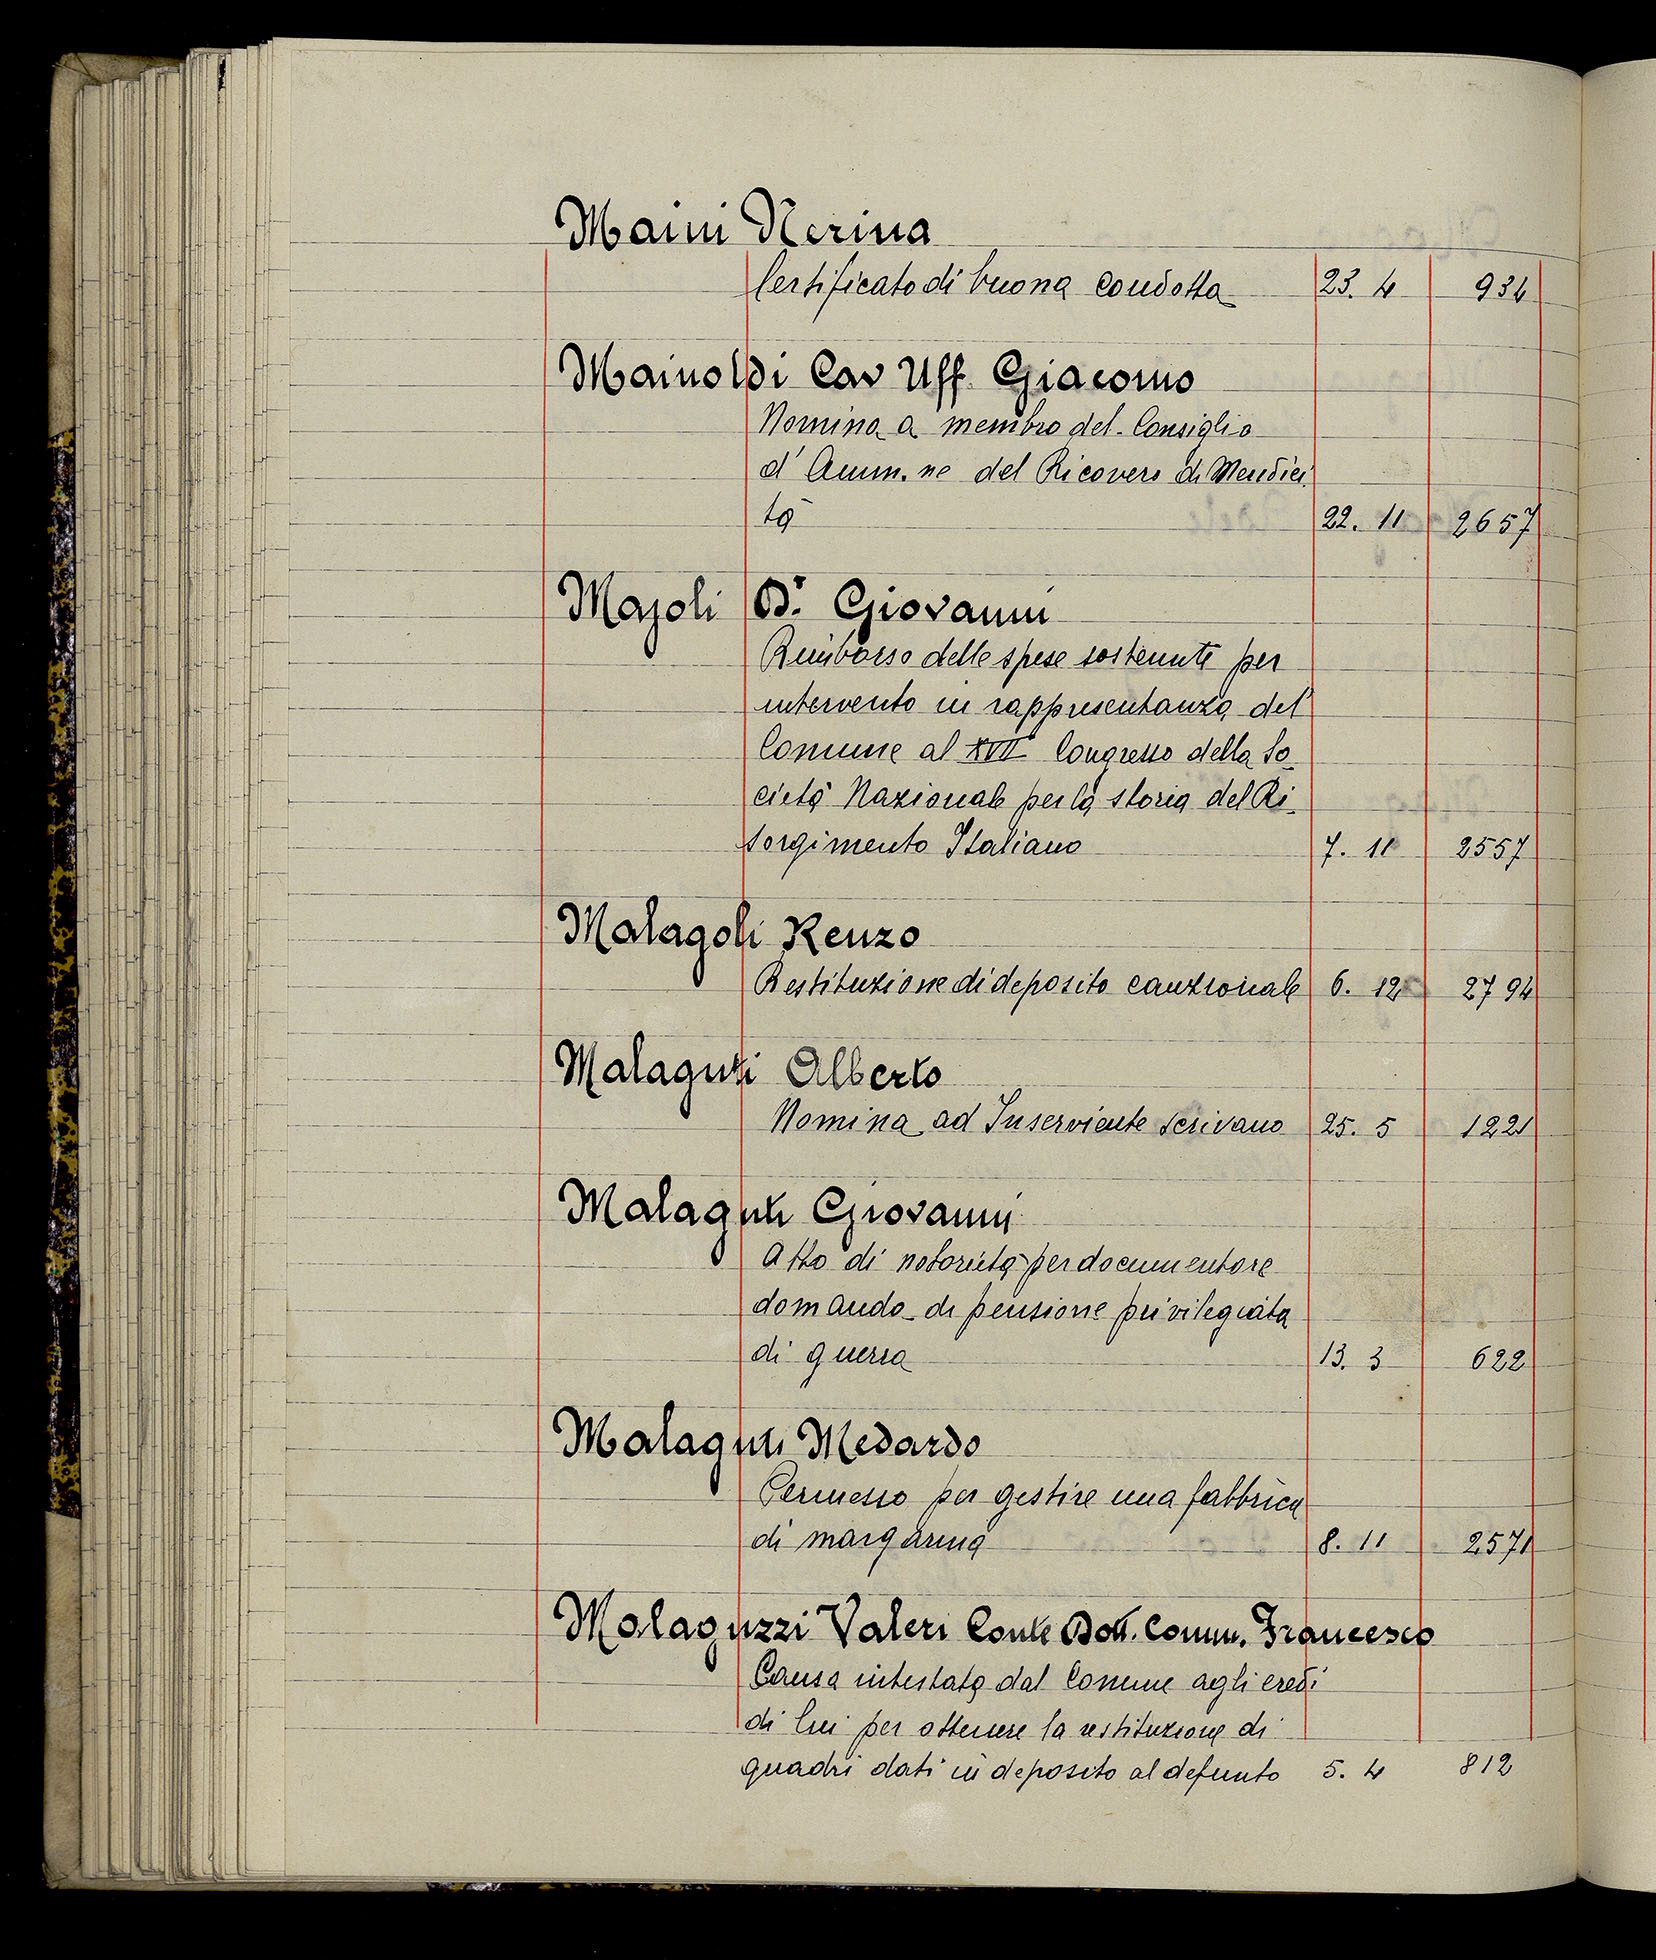 Maini Nerina
Certificato di buona condotta 23. 4 934
Mainoldi Cav Uff. Giacomo
Nomina a membro del Consiglio
d'Amm.ne del Ricovero di Mendici
tà 22. 11 2657
Majoli Dr. Giovanni
Rimborso delle spese sostenute per
intervento in rappresentanza del
Comune al XVII Congresso della So_
cietà Nazionale per la storia del Ri_
sorgimento Italiano 7. 11 2557
Malagoli Renzo
Restituzione di deposito cauzionale 6. 12 2794
Malaguti Alberto
Nomina ad Inserviente scrivano 25. 5 1221
Malaguti Giovanni
Atto di notorietà per documentare
domanda di pensione privilegiata
di guerra 13. 3 622
Malaguti Medardo
Permesso per gestire una fabbrica
di margarina 8. 11 2571
Malaguzzi Valeri Conte Dott. Comm. Francesco
Causa intestata dal Comune agli eredi
di lui per ottenere la restituzione di
quadri dati in deposito al defunto 5. 4 812